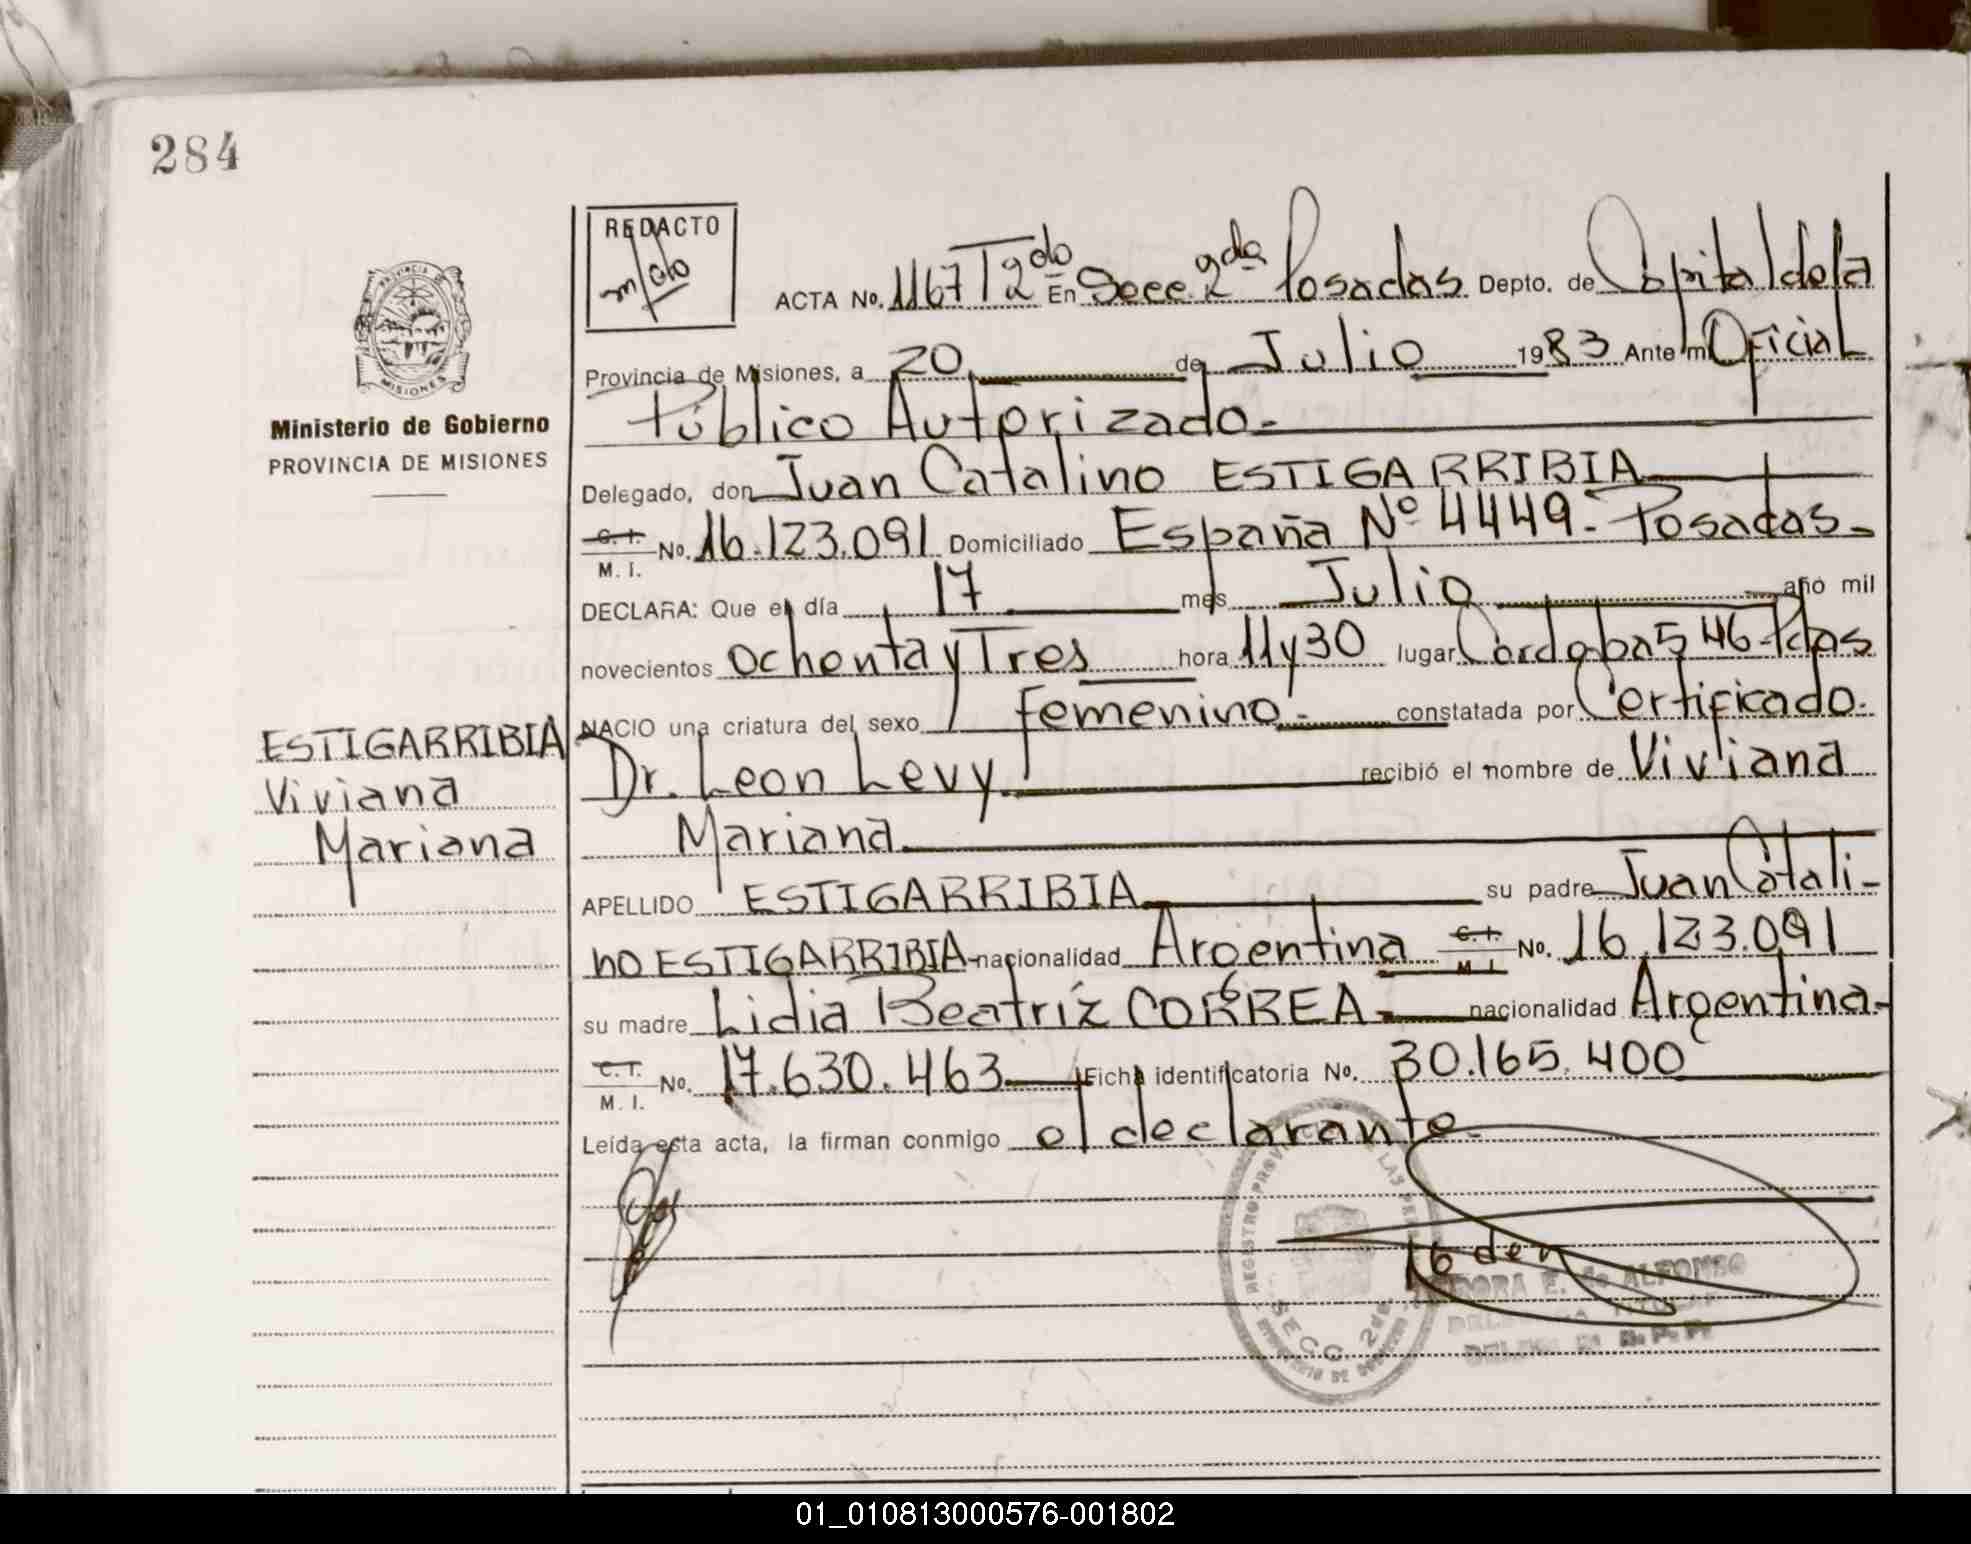 284
REDACTO
PROVINCIA DE
MISIONES
Ministerio de Gobierno
PROVINCIA DE MISIONES
ACTA No. 1167 T 2do En Secc. 2da Posadas Depto. de Capital de la
Provincia de Misiones, a 20 de Julio 1983 Ante mi Oficial
Público Autorizado.-
Delegado, don Juan Catalino ESTIGARRIBIA
C. I. M. I. No. 16.123.091 Domiciliado España Nº 4449.- Posadas.-
DECLARA: Que el día 17 mes Julio año mil
novecientos ochenta y Tres hora 11 y 30 lugar Cordoba 546-Pdas
NACIO una criatura del sexo femenino.- constatada por Certificado.
Dr. Leon Levy recibió el nombre de Viviana
Mariana
ESTIGARRIBIA
Viviana
Mariana
APELLIDO ESTIGARRIBIA su padre Juan Catali-
no ESTIGARRIBIA nacionalidad Argentina C. I. M. I. No. 16.123.091
su madre Lidia Beatríz CORREA.- nacionalidad Argentina.-
C. I. M. I. No. 17.630.463 Ficha identificatoria No. 30.165.400
Leída esta acta, la firman conmigo el declarante.
REGISTRO LAS
SECC. 2da.
E. de ALFONSO
01_010813000576-001802